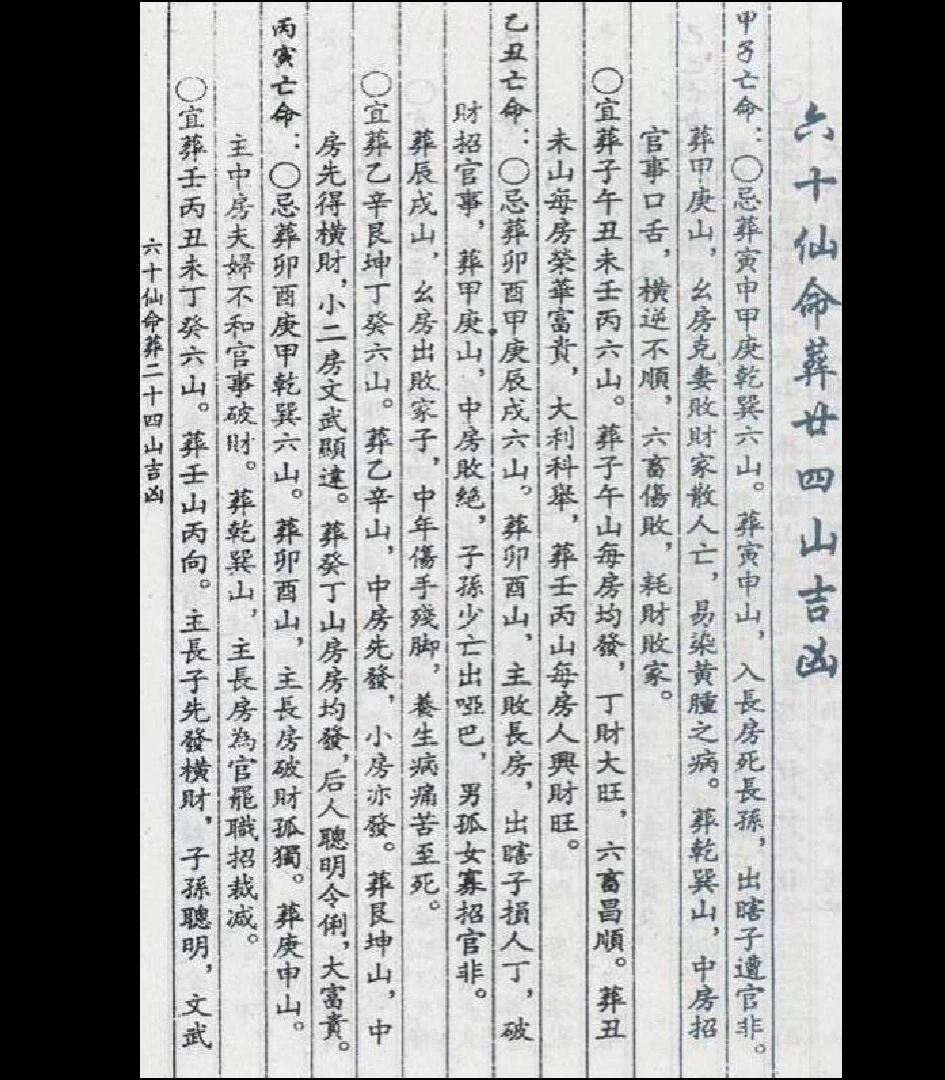 六十仙命葬廿四山吉凶
甲子亡命：〇忌葬寅申甲庚乾巽六山。葬寅申山，入長房死長孫，出瞎子遭官非。
葬甲庚山，幺房克妻敗財家散人亡，易染黄腫之病。葬乾巽山，中房招
官事口舌，橫逆不順，六畜傷敗，耗財敗家。
〇宜葬子午丑未壬丙六山。葬子午山每房均發，丁財大旺，六畜昌順。葬丑
未山每房榮華富貴，大利科舉，葬壬丙山每房人興財旺。
乙丑亡命：〇忌葬卯酉甲庚辰戌六山。葬卯酉山，主敗長房，出瞎子損人丁，破
財招官事，葬甲庚山，中房敗絶，子孫少亡出啞巴，男孤女寡招官非。
葬辰戌山，幺房出敗家子，中年傷手殘脚，養生病痛苦至死。
〇宜葬乙辛艮坤丁癸六山。葬乙辛山，中房先發，小房亦發。葬艮坤山，中
房先得橫財，小二房文武顯達。葬癸丁山房房均發，后人聰明令俐，大富貴。
丙寅亡命：〇忌葬卯酉庚甲乾巽六山。葬卯酉山，主長房破財孤獨。葬庚申山。
主中房夫婦不和官事破財。葬乾巽山，主長房為官罷職招裁减。
〇宜葬壬丙丑未丁癸六山。葬壬山丙向。主長子先發橫財，子孫聰明，文武
六十仙命葬二十四山吉凶